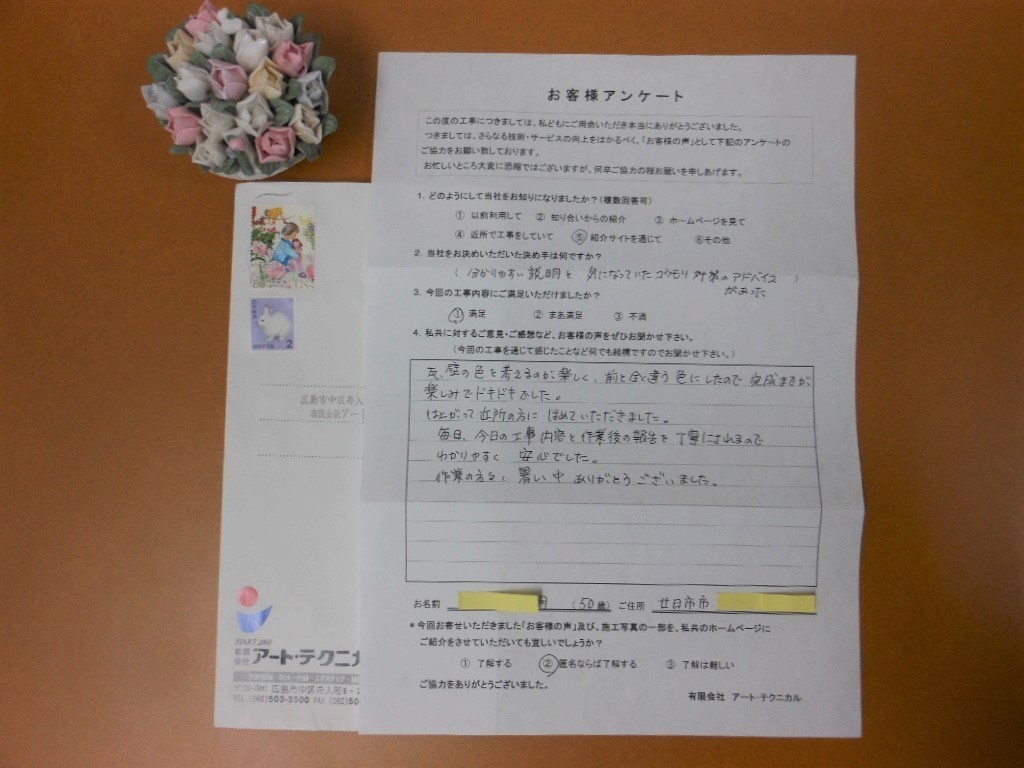 お客様アンケート
この度の工事につきましては、私どもにご用命いただき本当にありがとうございました。
つきましては、さらなる技術・サービスの向上をはかるべく、「お客様の声」として下記のアンケートの
ご協力をお願い致しております。
お忙しいところ大変に恐縮ではございますが、何卒ご協力の程お願いを申しあげます。
1. どのようにして当社をお知りになりましたか？（複数回答可）
① 以前利用して ② 知り合いからの紹介 ③ ホームページを見て
④ 近所で工事をしていて ⑤ 紹介サイトを通じて ⑥その他
2. 当社をお決めいただいた決め手は何ですか？
( 分かりやすい説明と 気になっていたコウモリ対策のアドバイス )
があった
3. 今回の工事内容にご満足いただけましたか？
① 満足 ② まあ満足 ③ 不満
4. 私共に対するご意見・ご感想など、お客様の声をぜひお聞かせ下さい。
(今回の工事を通じて感じたことなど何でも結構ですのでお聞かせ下さい。)
瓦、壁の色を考えるのが楽しく、前と全く違う色にしたので完成まさが
楽しみでドキドキでした。
仕上がって近所の方に ほめていただきました。
毎日、今日の工事内容と作業後の報告を丁寧にされるので
わかりやすく 安心でした。
作業の方々、暑い中 ありがとうございました。
お名前 (50歳) ご住所 廿日市市
*今回お寄せいただきました「お客様の声」及び、施工写真の一部を、私共のホームページに
ご紹介をさせていただいても宜しいでしょうか？
① 了解する ② 匿名ならば了解する ③ 了解は難しい
ご協力をありがとうございました。
有限会社 アート・テクニカル
NIPPON 2
広島市中区舟入
有限会社アート
START 2000
有限会社 アート・テクニカ
広島市中区舟入町6-
TEL.(082)503-3500 FAX.(082)50